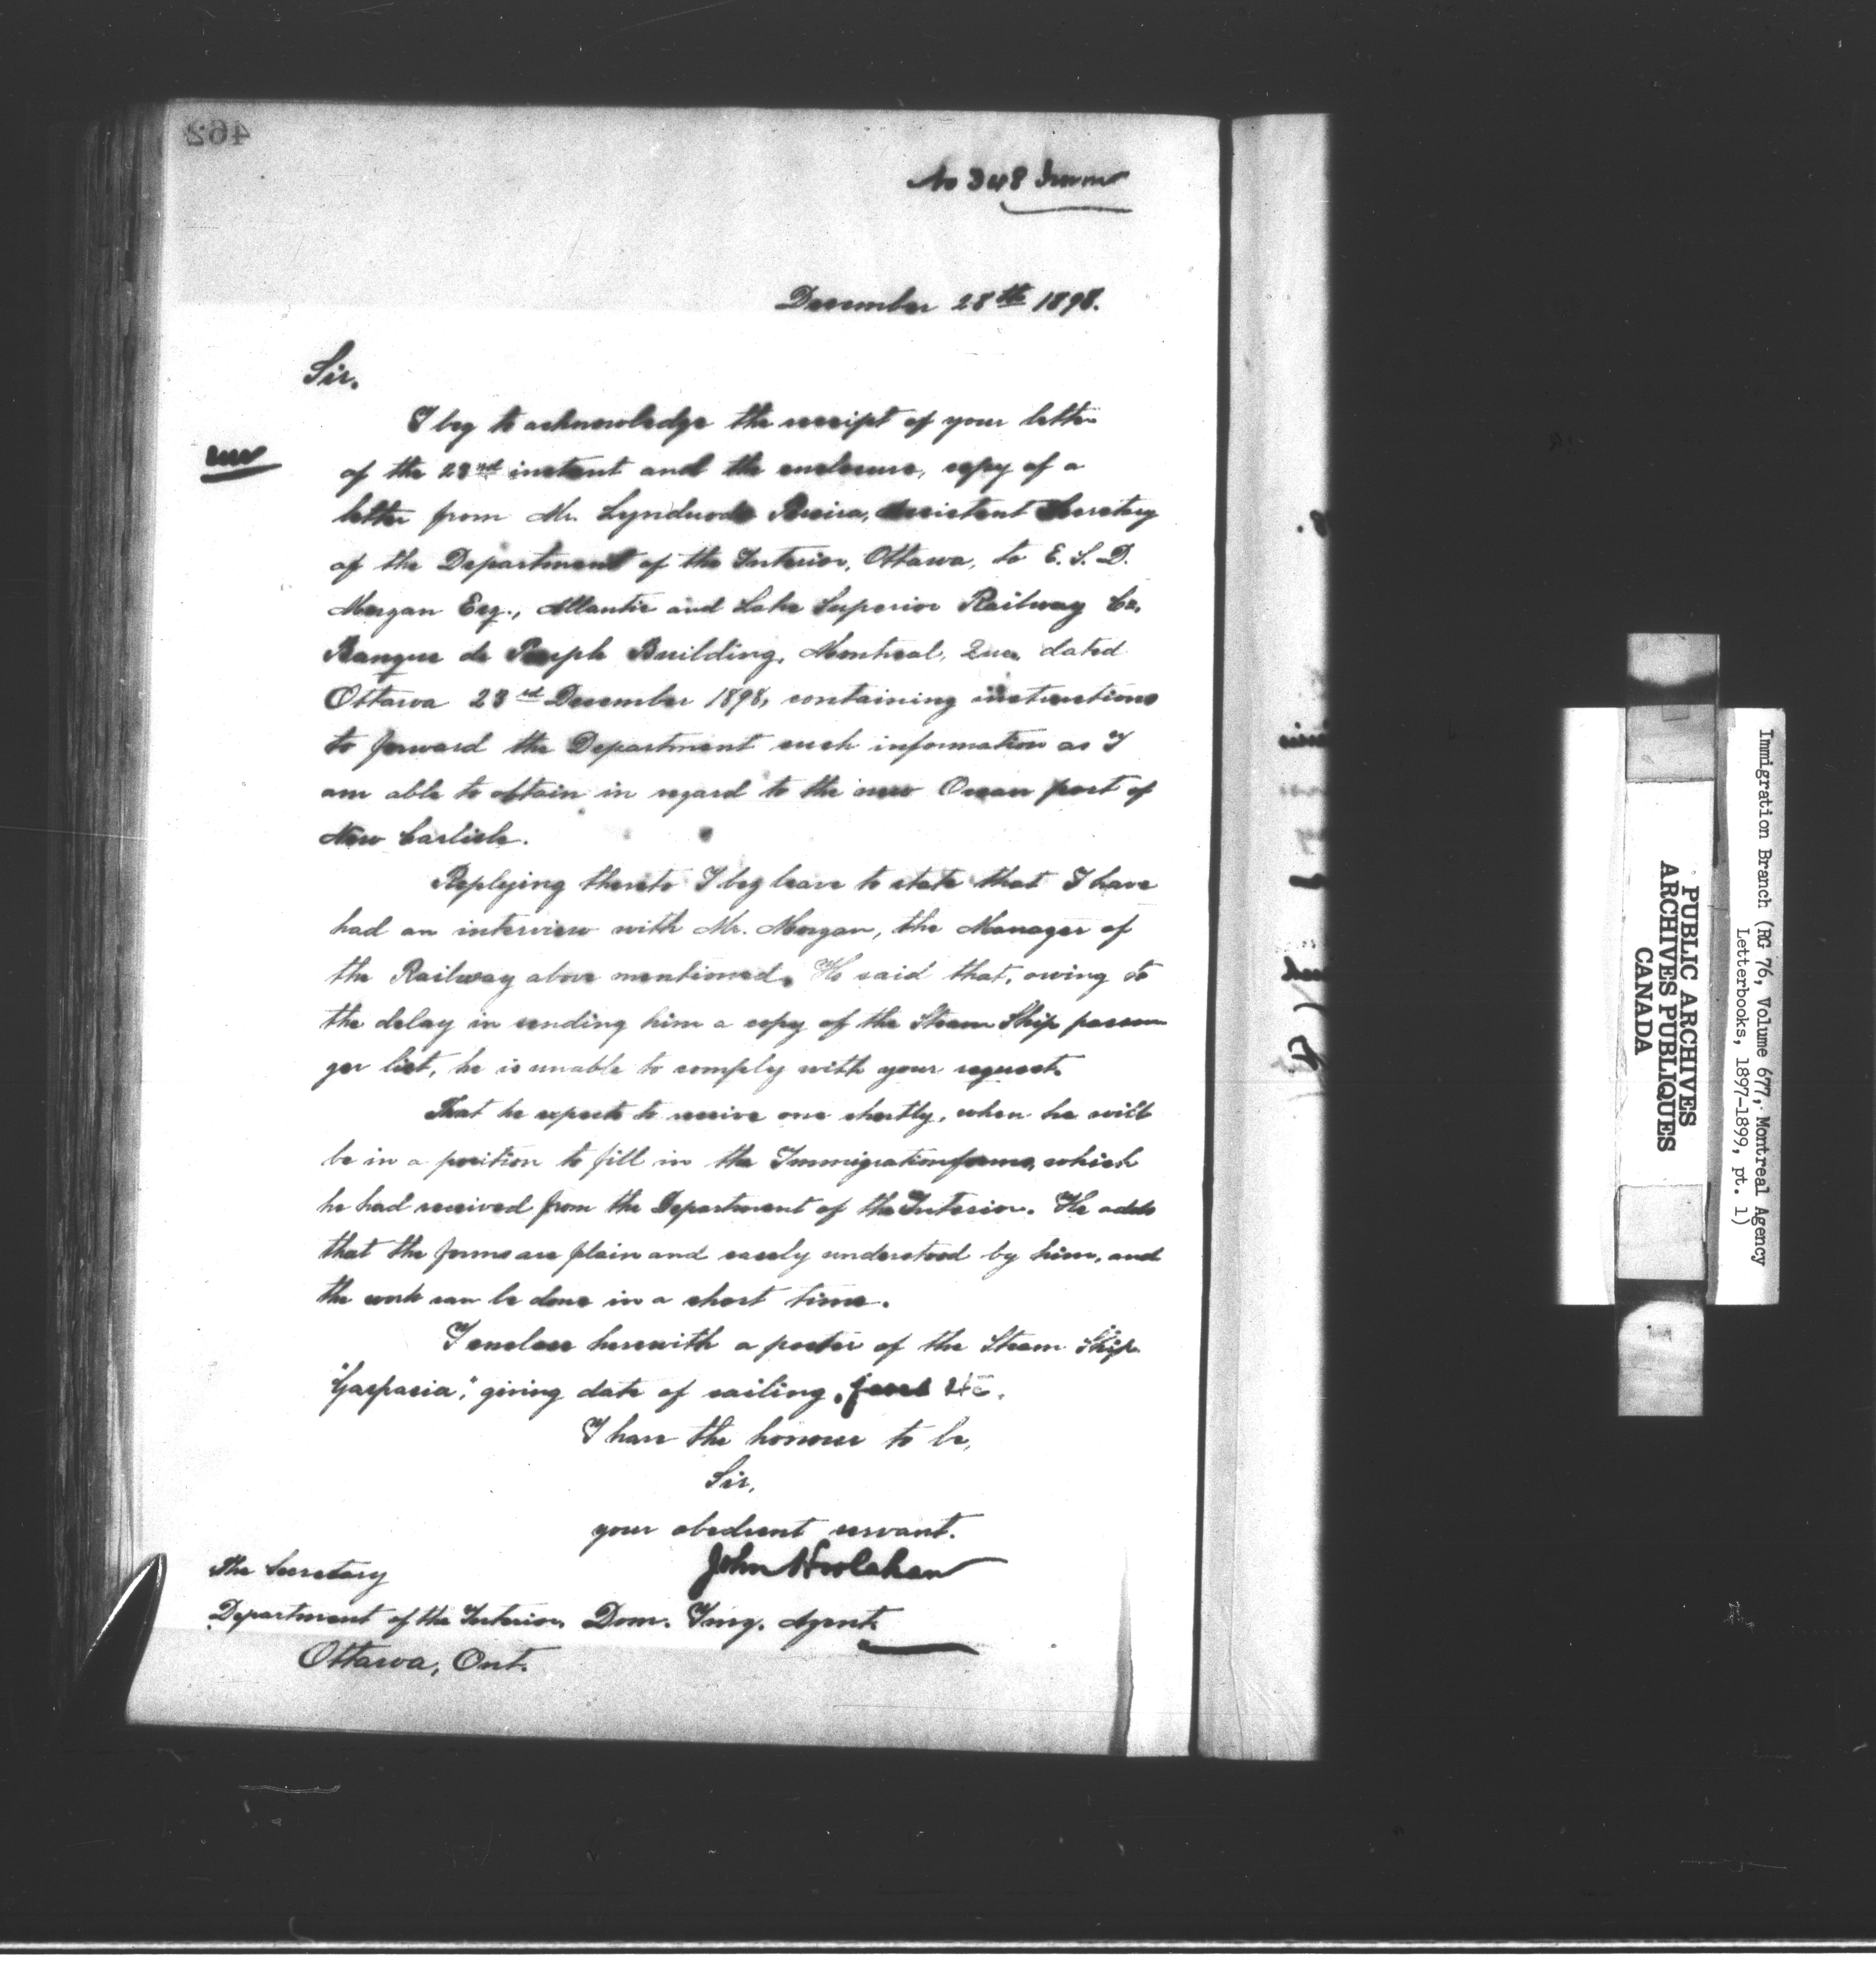 462
No 348 Imm
December 28th 1898.
Sir.
I beg to acknowledge the receipt of your letter
of the 23rd instant and the enclosure, copy of a
letter from Mr. Lyndwode Pereira, Assistant Secretary
of the Department of the Interior, Ottawa, to E. S. D.
Morgan Esq., Atlantic and Lake Superior Railway Co.
Banque de Peuple Building, Montreal, Que, dated
Ottawa 23rd December 1898, containing instructions
to forward the Department such information as I
am able to obtain in regard to the new Ocean port of
New Carlisle.
Replying thereto I beg leave to state that I have
had an interview with Mr. Morgan, the Manager of
the Railway above mentioned. He said that, owing to
the delay in sending him a copy of the Steam Ship passen
ger list, he is unable to comply with your request.
That he expects to receive one shortly, when he will
be in a position to fill in the Immigration forms, which
he had received from the Department of the Interior. He adds
that the forms are plain and easely understood by him, and
the work can be done in a short time.
I enclose herewith a poster of the Steam Ship
"Gaspasia", giving date of sailing,
I have the honour to be,
Sir,
your obedient servant.
John Hoolahan
The Secretary
Department of the Interior, Dom. Img. Agent.
Ottawa, Ont.
Immigration Branch (RG 76, Volume 677, Montreal Agency
Letterbooks, 1897-1899, pt. 1)
PUBLIC ARCHIVES
ARCHIVES PUBLIQUES
CANADA